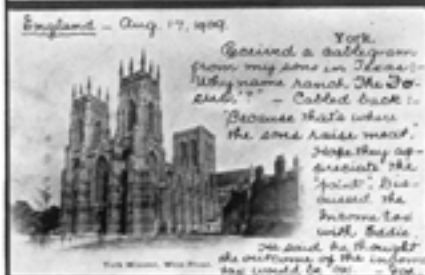 England – Aug. 17, 1909.
York.
Received a cablegram
from my sons in Texas:–
"Why name ranch The Fo-
cus?" – Cabled back:–
"Because that's where
the sons raise meat."
Hope they ap-
preciate the
"point". Dis-
cussed the
Income tax
with Eddie.
He said he thought
the outcome of the income
tax would be
York Minster, West Front.